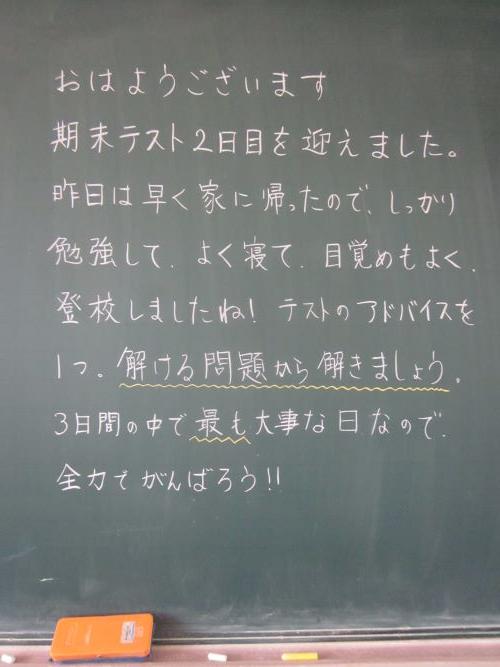 おはようございます
期末テスト2日目を迎えました。
昨日は早く家に帰ったので、しっかり
勉強して、よく寝て、目覚めもよく、
登校しましたね! テストのアドバイスを
1つ。解ける問題から解きましょう。
3日間の中で最も大事な日なので、
全力でがんばろう!!